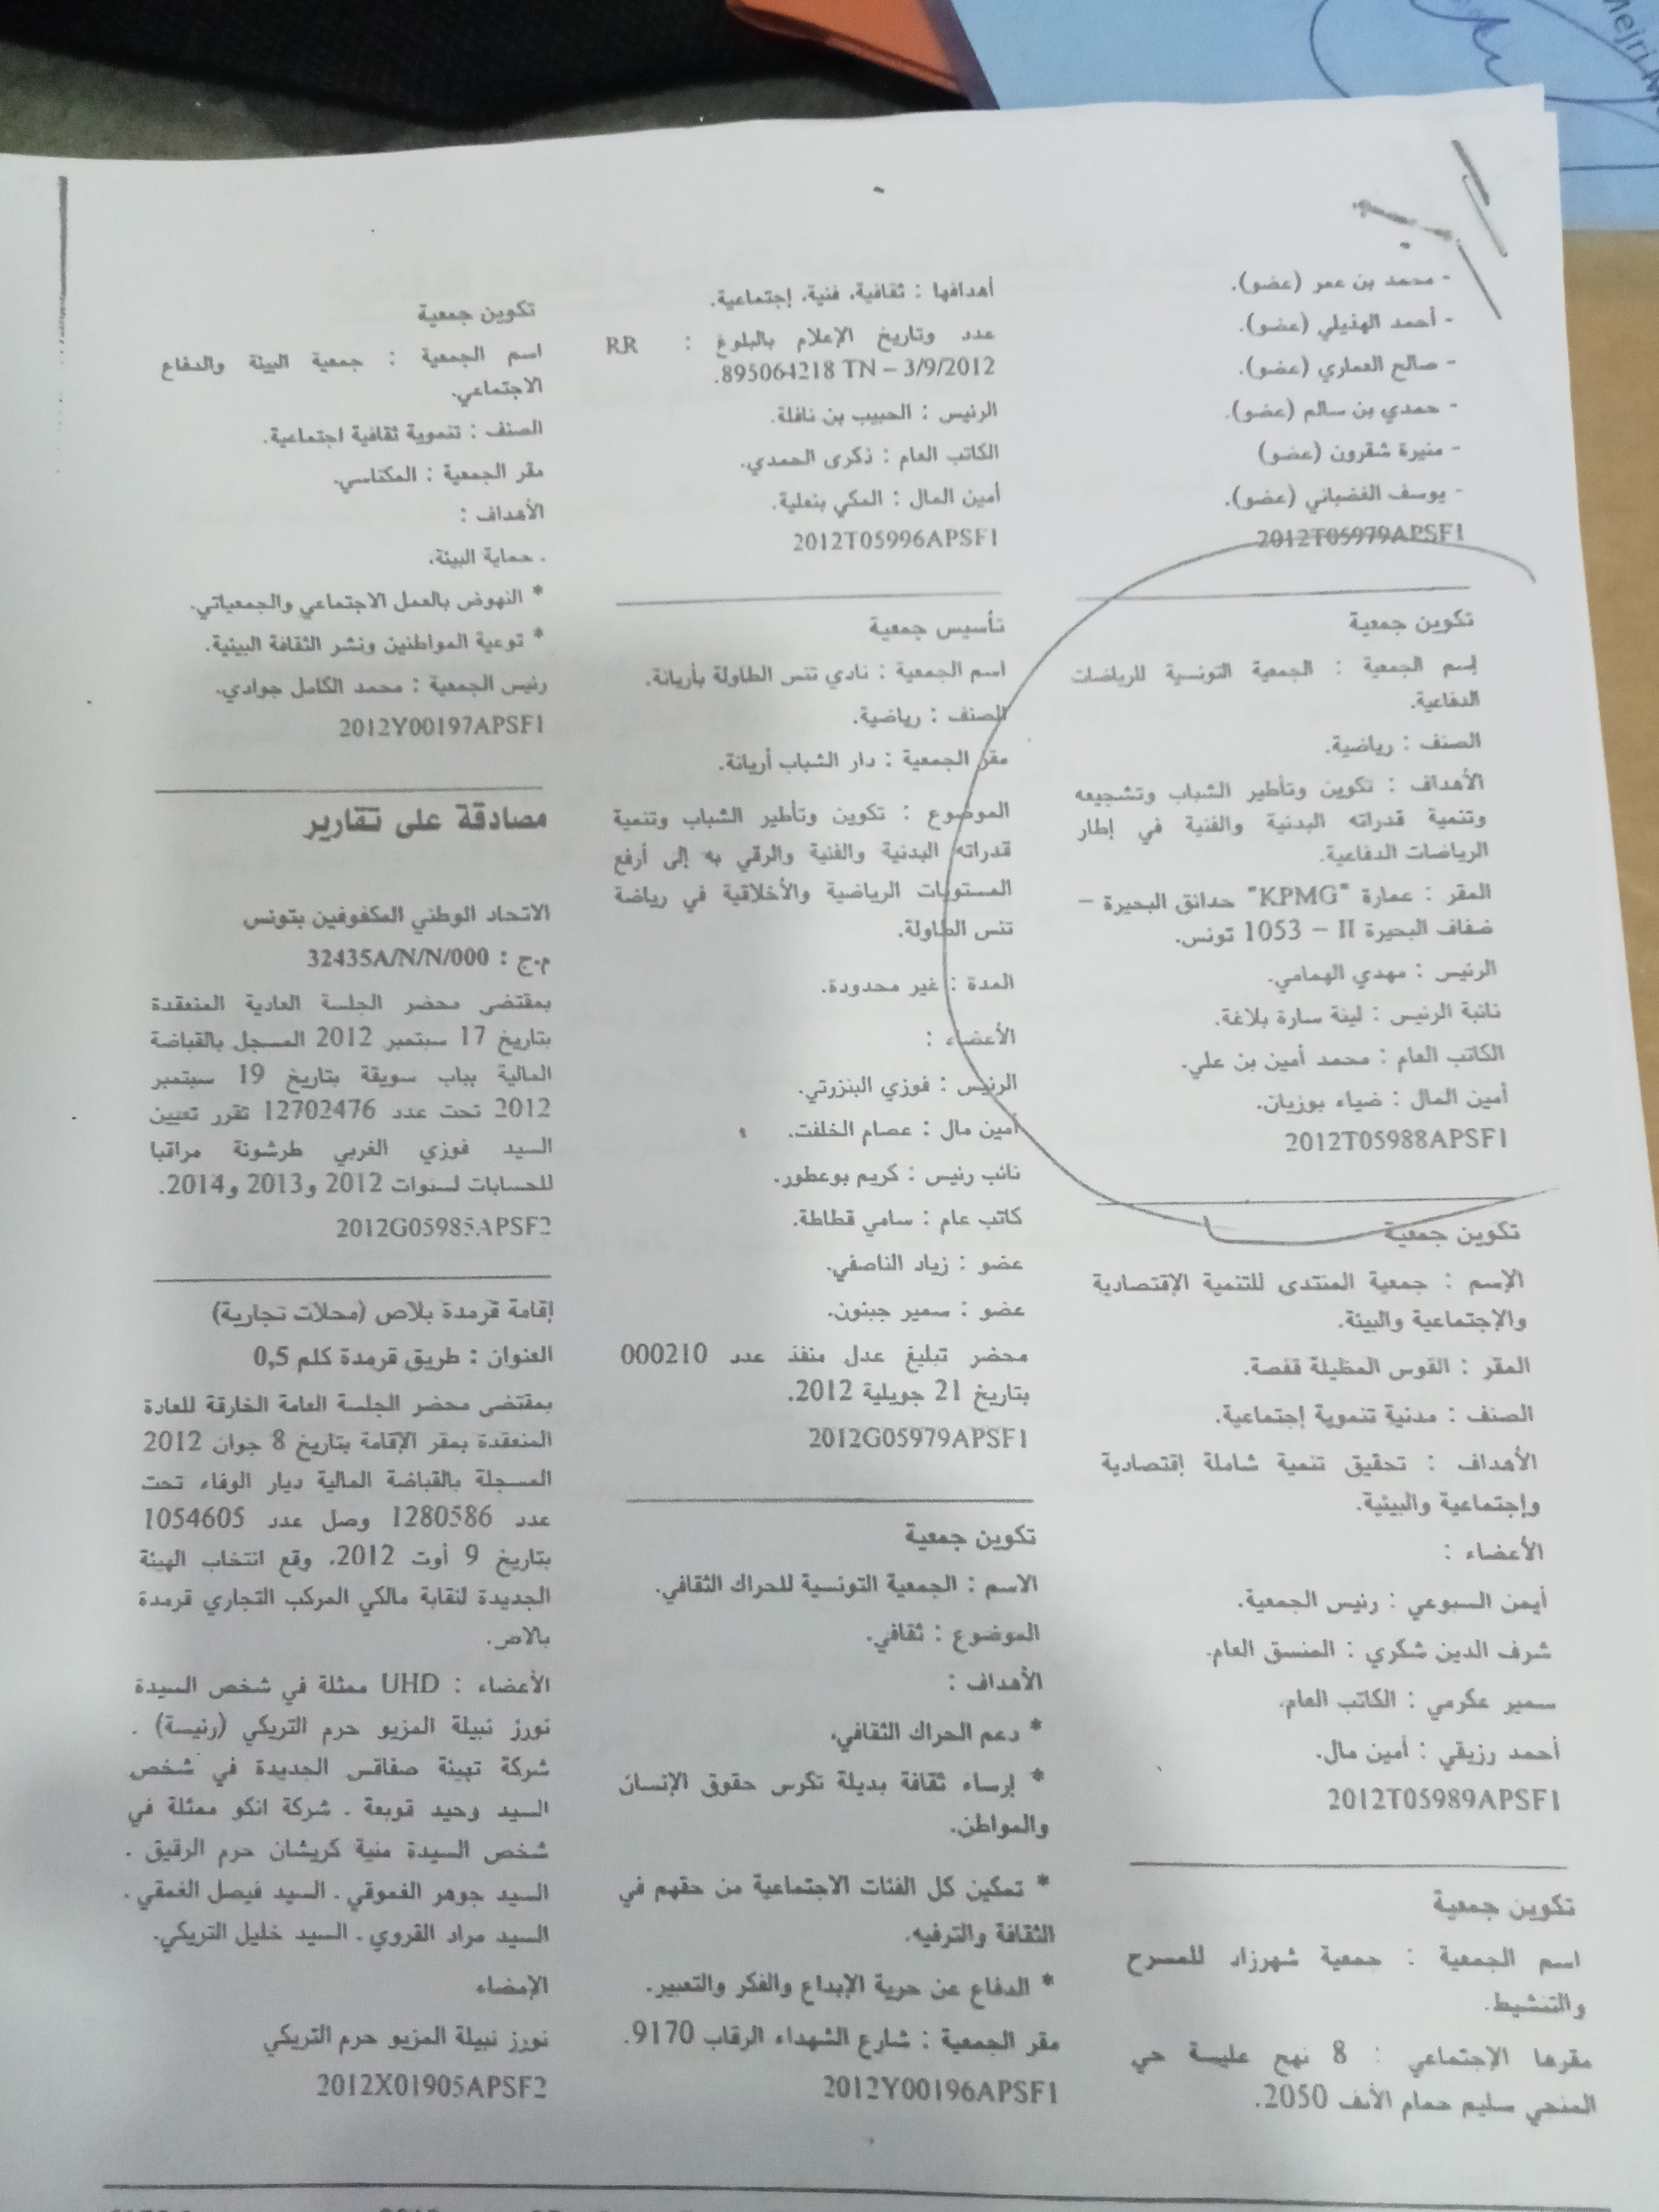 - محمد بن عمر (عضو).
- أحمد الهذيلي (عضو).
- صالح العماري (عضو).
- حمدي بن سالم (عضو).
- منيرة شقرون (عضو)
- يوسف الغضباني (عضو).
2012T05979APSF1
تكوين جمعية
إسم الجمعية : الجمعية التونسية للرياضات
الدفاعية.
الصنف : رياضية.
الأهداف : تكوين وتأطير الشباب وتشجيعه
وتنمية قدراته البدنية والفنية في إطار
الرياضات الدفاعية.
المقر : عمارة "KPMG" حدائق البحيرة –
ضفاف البحيرة II – 1053 تونس.
الرئيس : مهدي الهمامي.
نائبة الرئيس : لينة سارة بلاغة.
الكاتب العام : محمد أمين بن علي.
أمين المال : ضياء بوزيان.
2012T05988APSF1
تكوين جمعية
الإسم : جمعية المنتدى للتنمية الإقتصادية
والإجتماعية والبيئة.
المقر : القوس المظيلة قفصة.
الصنف : مدنية تنموية إجتماعية.
الأهداف : تحقيق تنمية شاملة إقتصادية
وإجتماعية والبيئية.
الأعضاء :
أيمن السبوعي : رئيس الجمعية.
شرف الدين شكري : المنسق العام.
سمير عكرمي : الكاتب العام.
أحمد رزيقي : أمين مال.
2012T05989APSF1
تكوين جمعية
اسم الجمعية : جمعية شهرزاد للمسرح
والتنشيط.
مقرها الإجتماعي : 8 نهج عليسة حي
المنجي سليم حمام الأنف 2050.
أهدافها : ثقافية، فنية، إجتماعية.
عدد وتاريخ الإعلام بالبلوغ : RR
895064218 TN – 3/9/2012.
الرئيس : الحبيب بن نافلة.
الكاتب العام : ذكرى الحمدي.
أمين المال : المكي بنعلية.
2012T05996APSF1
تأسيس جمعية
اسم الجمعية : نادي تنس الطاولة بأريانة.
الصنف : رياضية.
مقر الجمعية : دار الشباب أريانة.
الموضوع : تكوين وتأطير الشباب وتنمية
قدراته البدنية والفنية والرقي به إلى أرفع
المستويات الرياضية والأخلاقية في رياضة
تنس الطاولة.
المدة : غير محدودة.
الأعضاء :
الرئيس : فوزي البنزرتي.
أمين مال : عصام الخلفت.
نائب رئيس : كريم بوعطور.
كاتب عام : سامي قطاطة.
عضو : زياد الناصفي.
عضو : سمير جبنون.
محضر تبليغ عدل منفذ عدد 000210
بتاريخ 21 جويلية 2012.
2012G05979APSF1
تكوين جمعية
الاسم : الجمعية التونسية للحراك الثقافي.
الموضوع : ثقافي.
الأهداف :
* دعم الحراك الثقافي.
* إرساء ثقافة بديلة تكرس حقوق الإنسان
والمواطن.
* تمكين كل الفئات الاجتماعية من حقهم في
الثقافة والترفيه.
* الدفاع عن حرية الإبداع والفكر والتعبير.
مقر الجمعية : شارع الشهداء الرقاب 9170.
2012Y00196APSF1
تكوين جمعية
اسم الجمعية : جمعية البيئة والدفاع
الاجتماعي.
الصنف : تنموية ثقافية اجتماعية.
مقر الجمعية : المكناسي.
الأهداف :
. حماية البيئة.
* النهوض بالعمل الاجتماعي والجمعياتي.
* توعية المواطنين ونشر الثقافة البيئية.
رئيس الجمعية : محمد الكامل جوادي.
2012Y00197APSF1
مصادقة على تقارير
الاتحاد الوطني المكفوفين بتونس
م.ج : 32435A/N/N/000
بمقتضى محضر الجلسة العادية المنعقدة
بتاريخ 17 سبتمبر 2012 المسجل بالقباضة
المالية بباب سويقة بتاريخ 19 سبتمبر
2012 تحت عدد 12702476 تقرر تعيين
السيد فوزي الغربي طرشونة مراقبا
للحسابات لسنوات 2012 و2013 و2014.
2012G05985APSF2
إقامة قرمدة بلاص (محلات تجارية)
العنوان : طريق قرمدة كلم 0,5
بمقتضى محضر الجلسة العامة الخارقة للعادة
المنعقدة بمقر الإقامة بتاريخ 8 جوان 2012
المسجلة بالقباضة المالية ديار الوفاء تحت
عدد 1280586 وصل عدد 1054605
بتاريخ 9 أوت 2012، وقع انتخاب الهيئة
الجديدة لنقابة مالكي المركب التجاري قرمدة
بالاص.
الأعضاء : UHD ممثلة في شخص السيدة
نورز نبيلة المزيو حرم التريكي (رئيسة) .
شركة تهيئة صفاقس الجديدة في شخص
السيد وحيد قوبعة . شركة انكو ممثلة في
شخص السيدة منية كريشان حرم الرقيق .
السيد جوهر الغموقي . السيد فيصل الغمقي .
السيد مراد القروي . السيد خليل التريكي.
الإمضاء
نورز نبيلة المزيو حرم التريكي
2012X01905APSF2